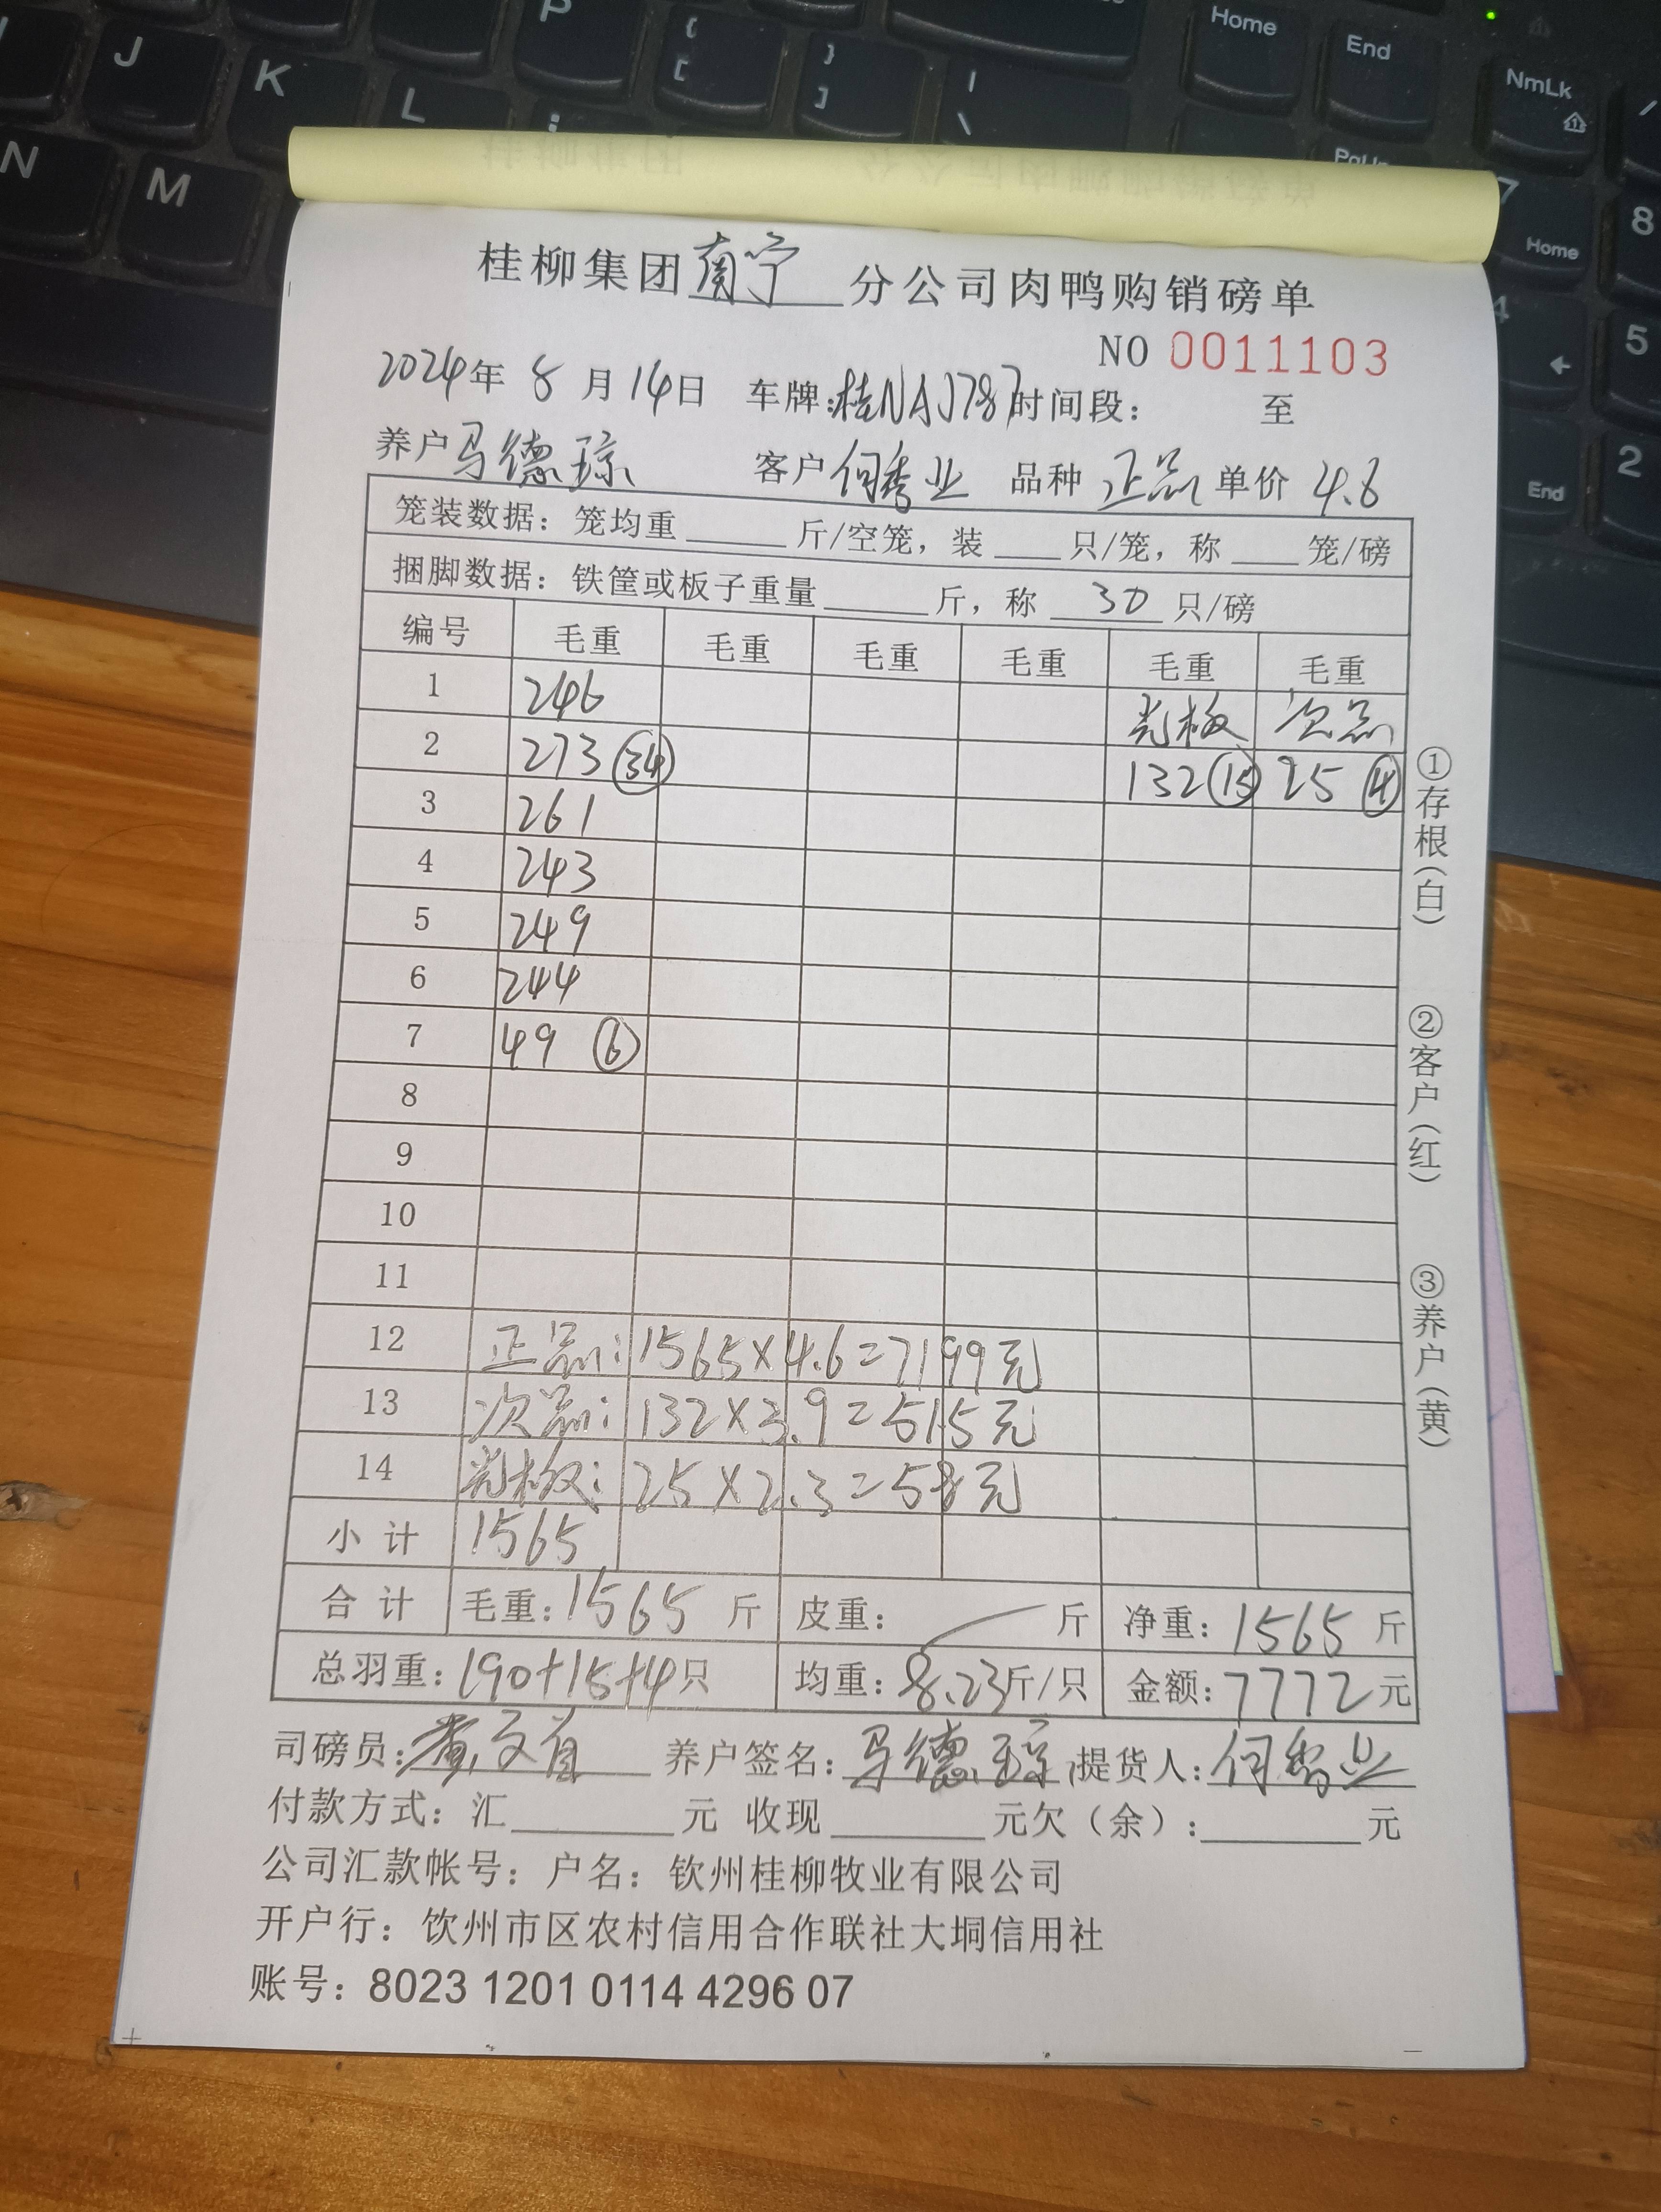 桂柳集团南宁分公司肉鸭购销磅单
NO 0011103
2024年 8 月 14日 车牌:桂NAJ787 时间段: 至
养户 马德琼 客户 何秀业 品种 正品 单价 4.6
笼装数据: 笼均重 斤/空笼, 装 只/笼, 称 笼/磅
捆脚数据: 铁筐或板子重量 斤, 称 30 只/磅
编号 毛重 毛重 毛重 毛重 毛重 毛重
1 246 光板 次品
2 273 34 132 15 25 4
3 261
4 243
5 249
6 244
7 49 6
8
9
10
11
12 正品: 1565×4.6=7199元
13 次品: 132×3.9=515元
14 光板: 25×2.3=58元
小计 1565
合计 毛重: 1565 斤 皮重: 斤 净重: 1565 斤
总羽重: 190+15+4只 均重: 8.23斤/只 金额: 7772元
司磅员: 黄 养户签名: 马德琼 提货人: 何秀业
付款方式: 汇 元 收现 元欠(余): 元
公司汇款帐号: 户名: 钦州桂柳牧业有限公司
开户行: 饮州市区农村信用合作联社大垌信用社
账号: 8023 1201 0114 4296 07
①存根(白)
②客户(红)
③养户(黄)
J
P
{ [
} ]
| \
Home
End
NmLk
K
L
: ;
N
M
PgUp
7 Home
8
/
4 ←
5
End
2